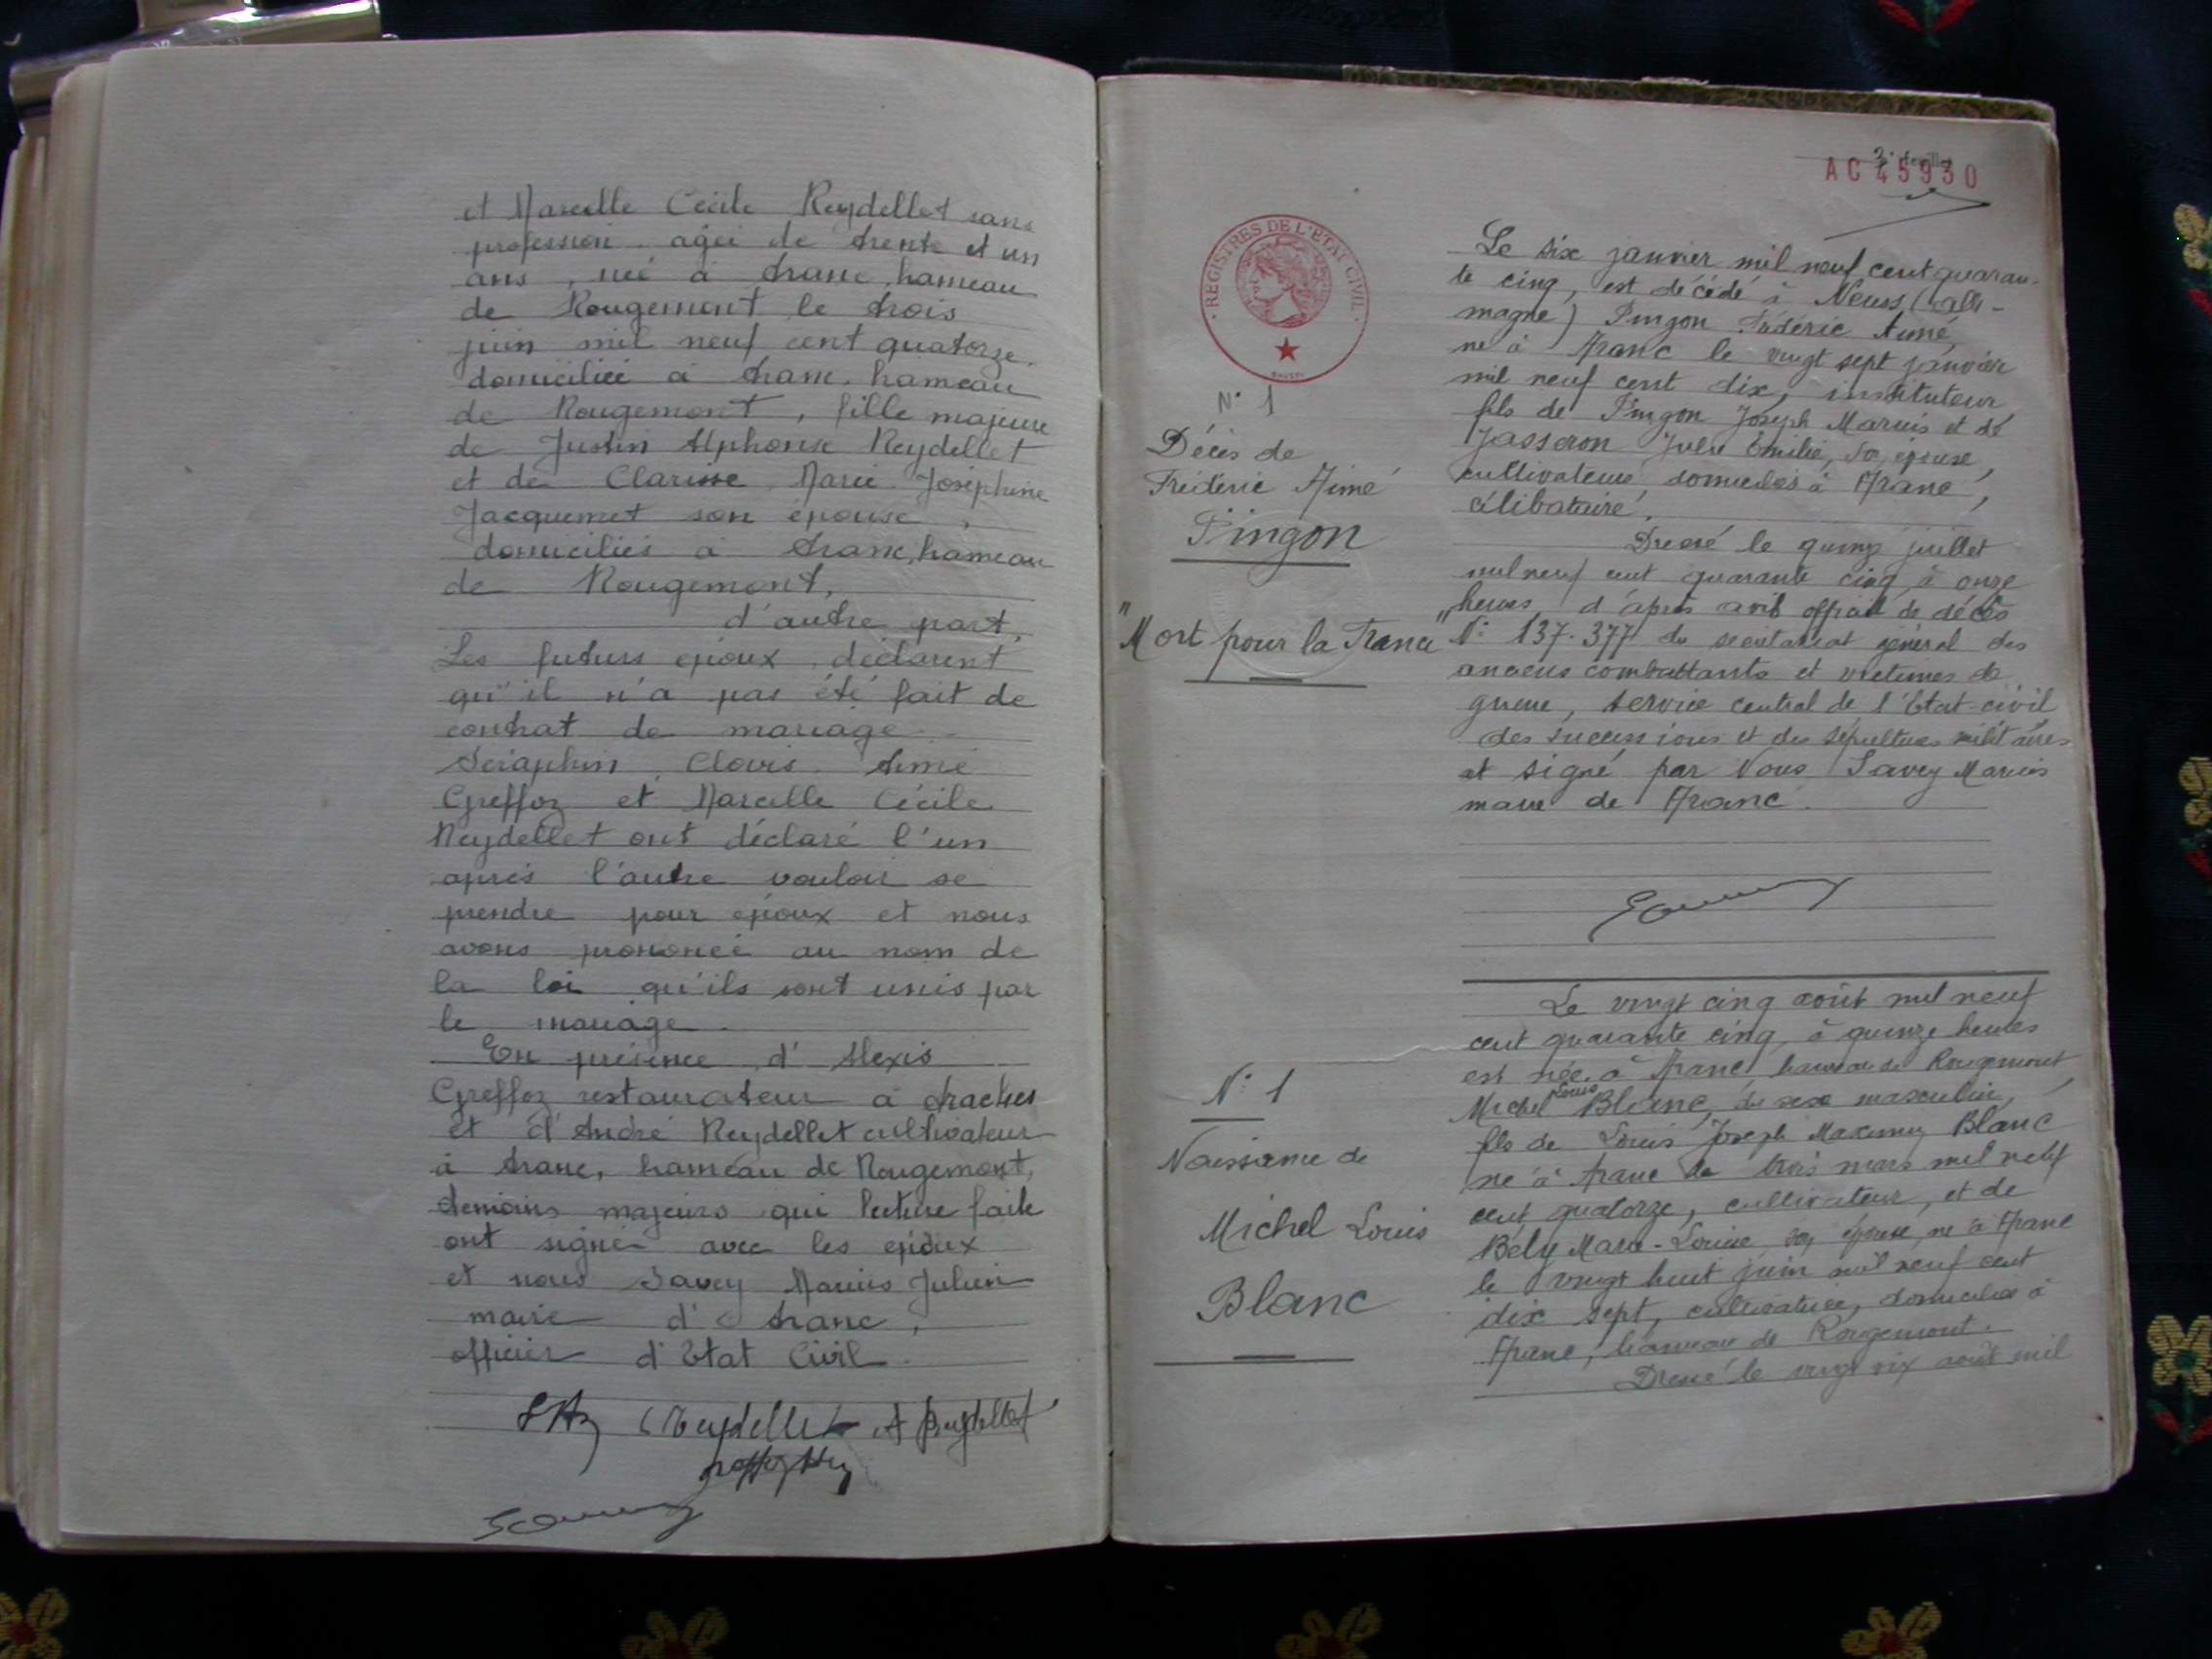 et Marcelle Cécile Reydellet sans
profession, agée de trente et un
ans, née à Aranc, hameau
de Rougemont le trois
juin mil neuf cent quatorze,
domiciliée à Aranc, hameau
de Rougemont, fille majeure
de Justin Alphonse Reydellet
et de Clarisse Marie Joséphine
Jacquemet son épouse,
domiciliés à Aranc, hameau
de Rougemont,
d'autre part.
Les futurs époux déclarent
qu'il n'a pas été fait de
contrat de mariage.
Séraphin Clovis Aimé
Greffoz et Marcelle Cécile
Reydellet ont déclaré l'un
après l'autre vouloir se
prendre pour époux et nous
avons prononcé au nom de
la loi qu'ils sont unis par
le mariage.
En présence d'Alexis
Greffoz restaurateur à Araches
et d'André Reydellet cultivateur
à Aranc, hameau de Rougemont,
témoins majeurs qui lecture faite
ont signé avec les époux
et nous Savey Marius Julien
maire d'Aranc,
officier d'Etat Civil.
C Reydellet A Reydellet
AC 45930
REGISTRES DE L'ETAT CIVIL
N° 1
Décès de
Fréderic Aimé
Pingon
"Mort pour la France"
Le six janvier mil neuf cent quaran-
te cinq, est décédé à Neuss (Alle-
magne) Pingon Fréderic Aimé,
né à Aranc le vingt sept janvier
mil neuf cent dix, instituteur,
fils de Pingon Joseph Marius et de
Jasseron Julie Emilie, son épouse,
cultivateurs domiciliés à Aranc,
célibataire.
Dressé le quinze juillet
mil neuf cent quarante cinq à onze
heures, d'après avis officiel de décès
N° 137.377 du secrétariat général des
anciens combattants et victimes de
guerre, service central de l'Etat-civil
des successions et des sépultures militaires
et signé par Nous Savey Marius
maire de Aranc.
N° 1
Naissance de
Michel Louis
Blanc
Le vingt cinq août mil neuf
cent quarante cinq, à quinze heures
est née à Aranc hameau de Rougemont,
Michel Louis Blanc, du sexe masculin,
fils de Louis Joseph Maximin Blanc
né à Aranc le trois mars mil neuf
cent quatorze, cultivateur, et de
Bély Marie-Louise son épouse, né à Aranc
le vingt huit juin mil neuf cent
dix sept, cultivatrice, domiciliés à
Aranc, hameau de Rougemont.
Dressé le vingt six août mil